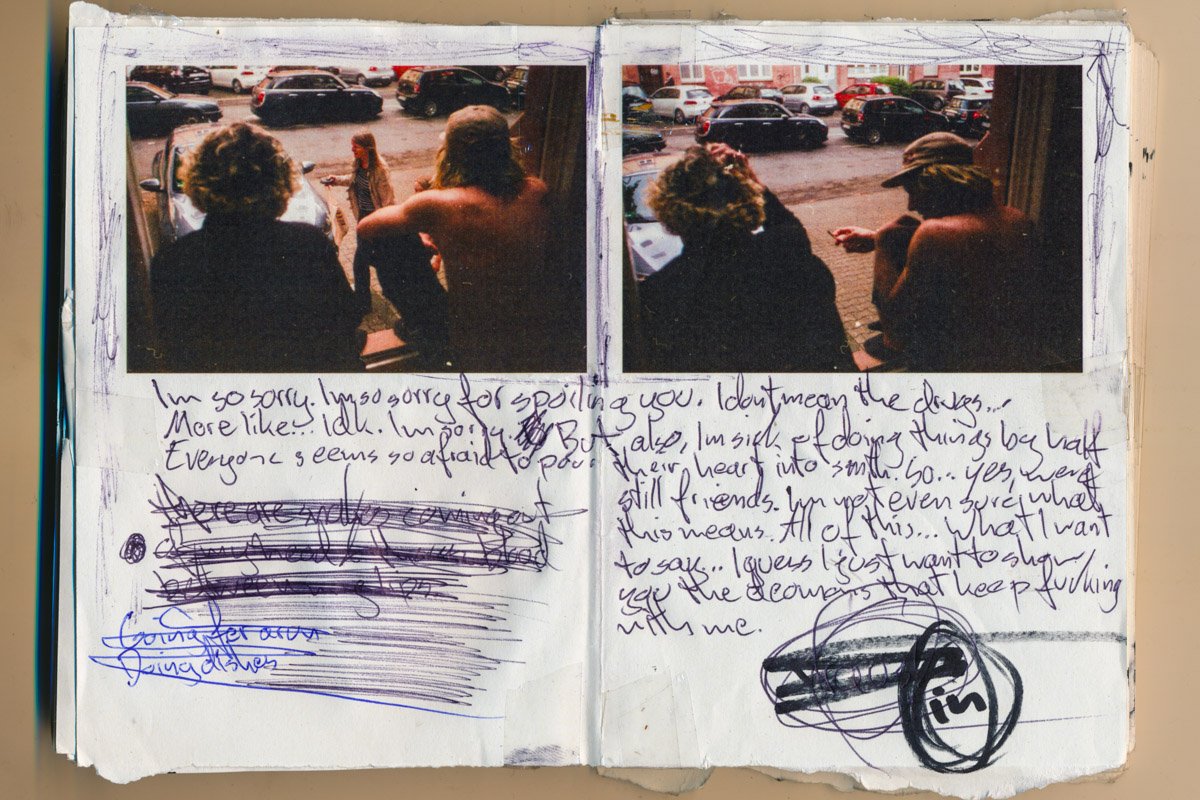 Im so sorry. Im so sorry for spoiling you. I dont mean the drugs...
More like... Idk. Im sorry. But also, Im sick of doing things by half
Everyone seems so afraid to pour their heart into smth. So... yes, were
still friends. Im not even sure what
this means. All of this... What I want
to say... I guess I just want to show
you the demons that keep fucking
with me.
there are coming out
blood
Going for a run
Doing dishes
in